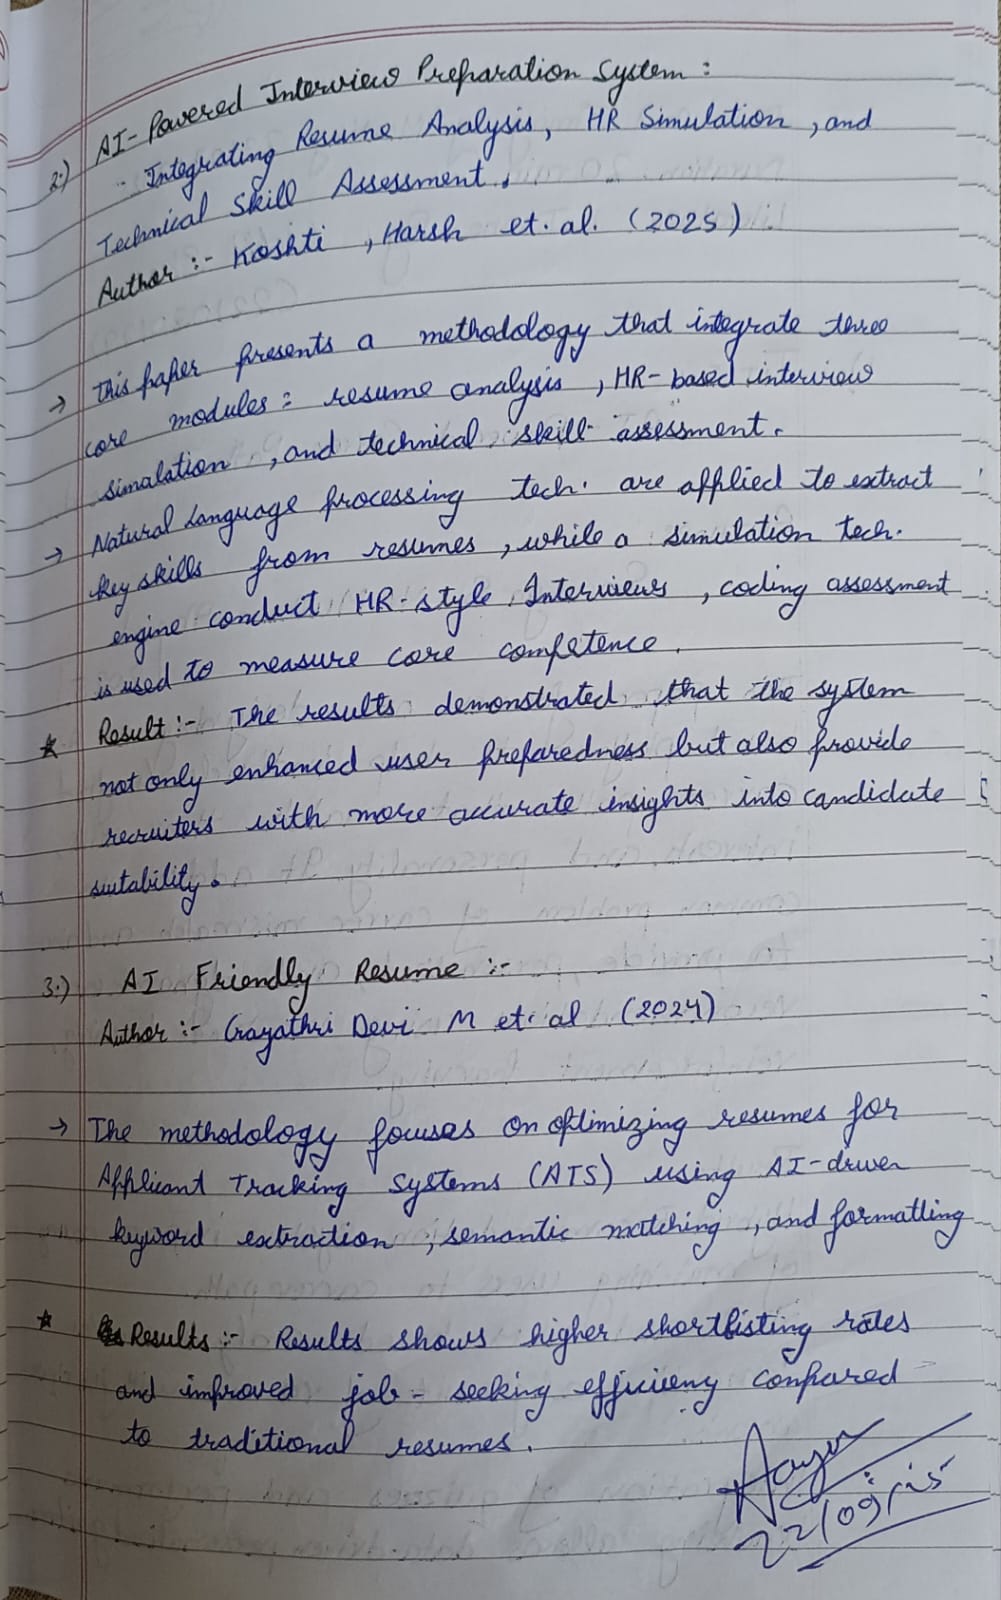 2.) AI-Powered Interview Preparation System :
Integrating Resume Analysis, HR Simulation, and
Technical Skill Assessment.
Author :- Koshti, Harsh et. al. (2025)
→ This paper presents a methodology that integrate three
core modules : resume analysis, HR-based interview
simalation, and technical skill assessment.
→ Natural Language processing tech. are applied to extract
key skills from resumes, while a simulation tech.
engine conduct HR-style Interviews, coding assessment
is used to measure core competence.
★ Result :- The results demonstrated that the system
not only enhanced user preparedness but also provide
recruiters with more accurate insights into candidate
suitability.
3.) AI Friendly Resume :-
Author :- Gayathri Devi M et. al (2024)
→ The methodology focuses on optimizing resumes for
Applicant Tracking Systems (ATS) using AI-driven
keyword extraction, semantic matching, and formatting
★ Results :- Results shows higher shortlisting rates
and improved job-seeking efficieny compared
to traditional resumes.
22/09/25